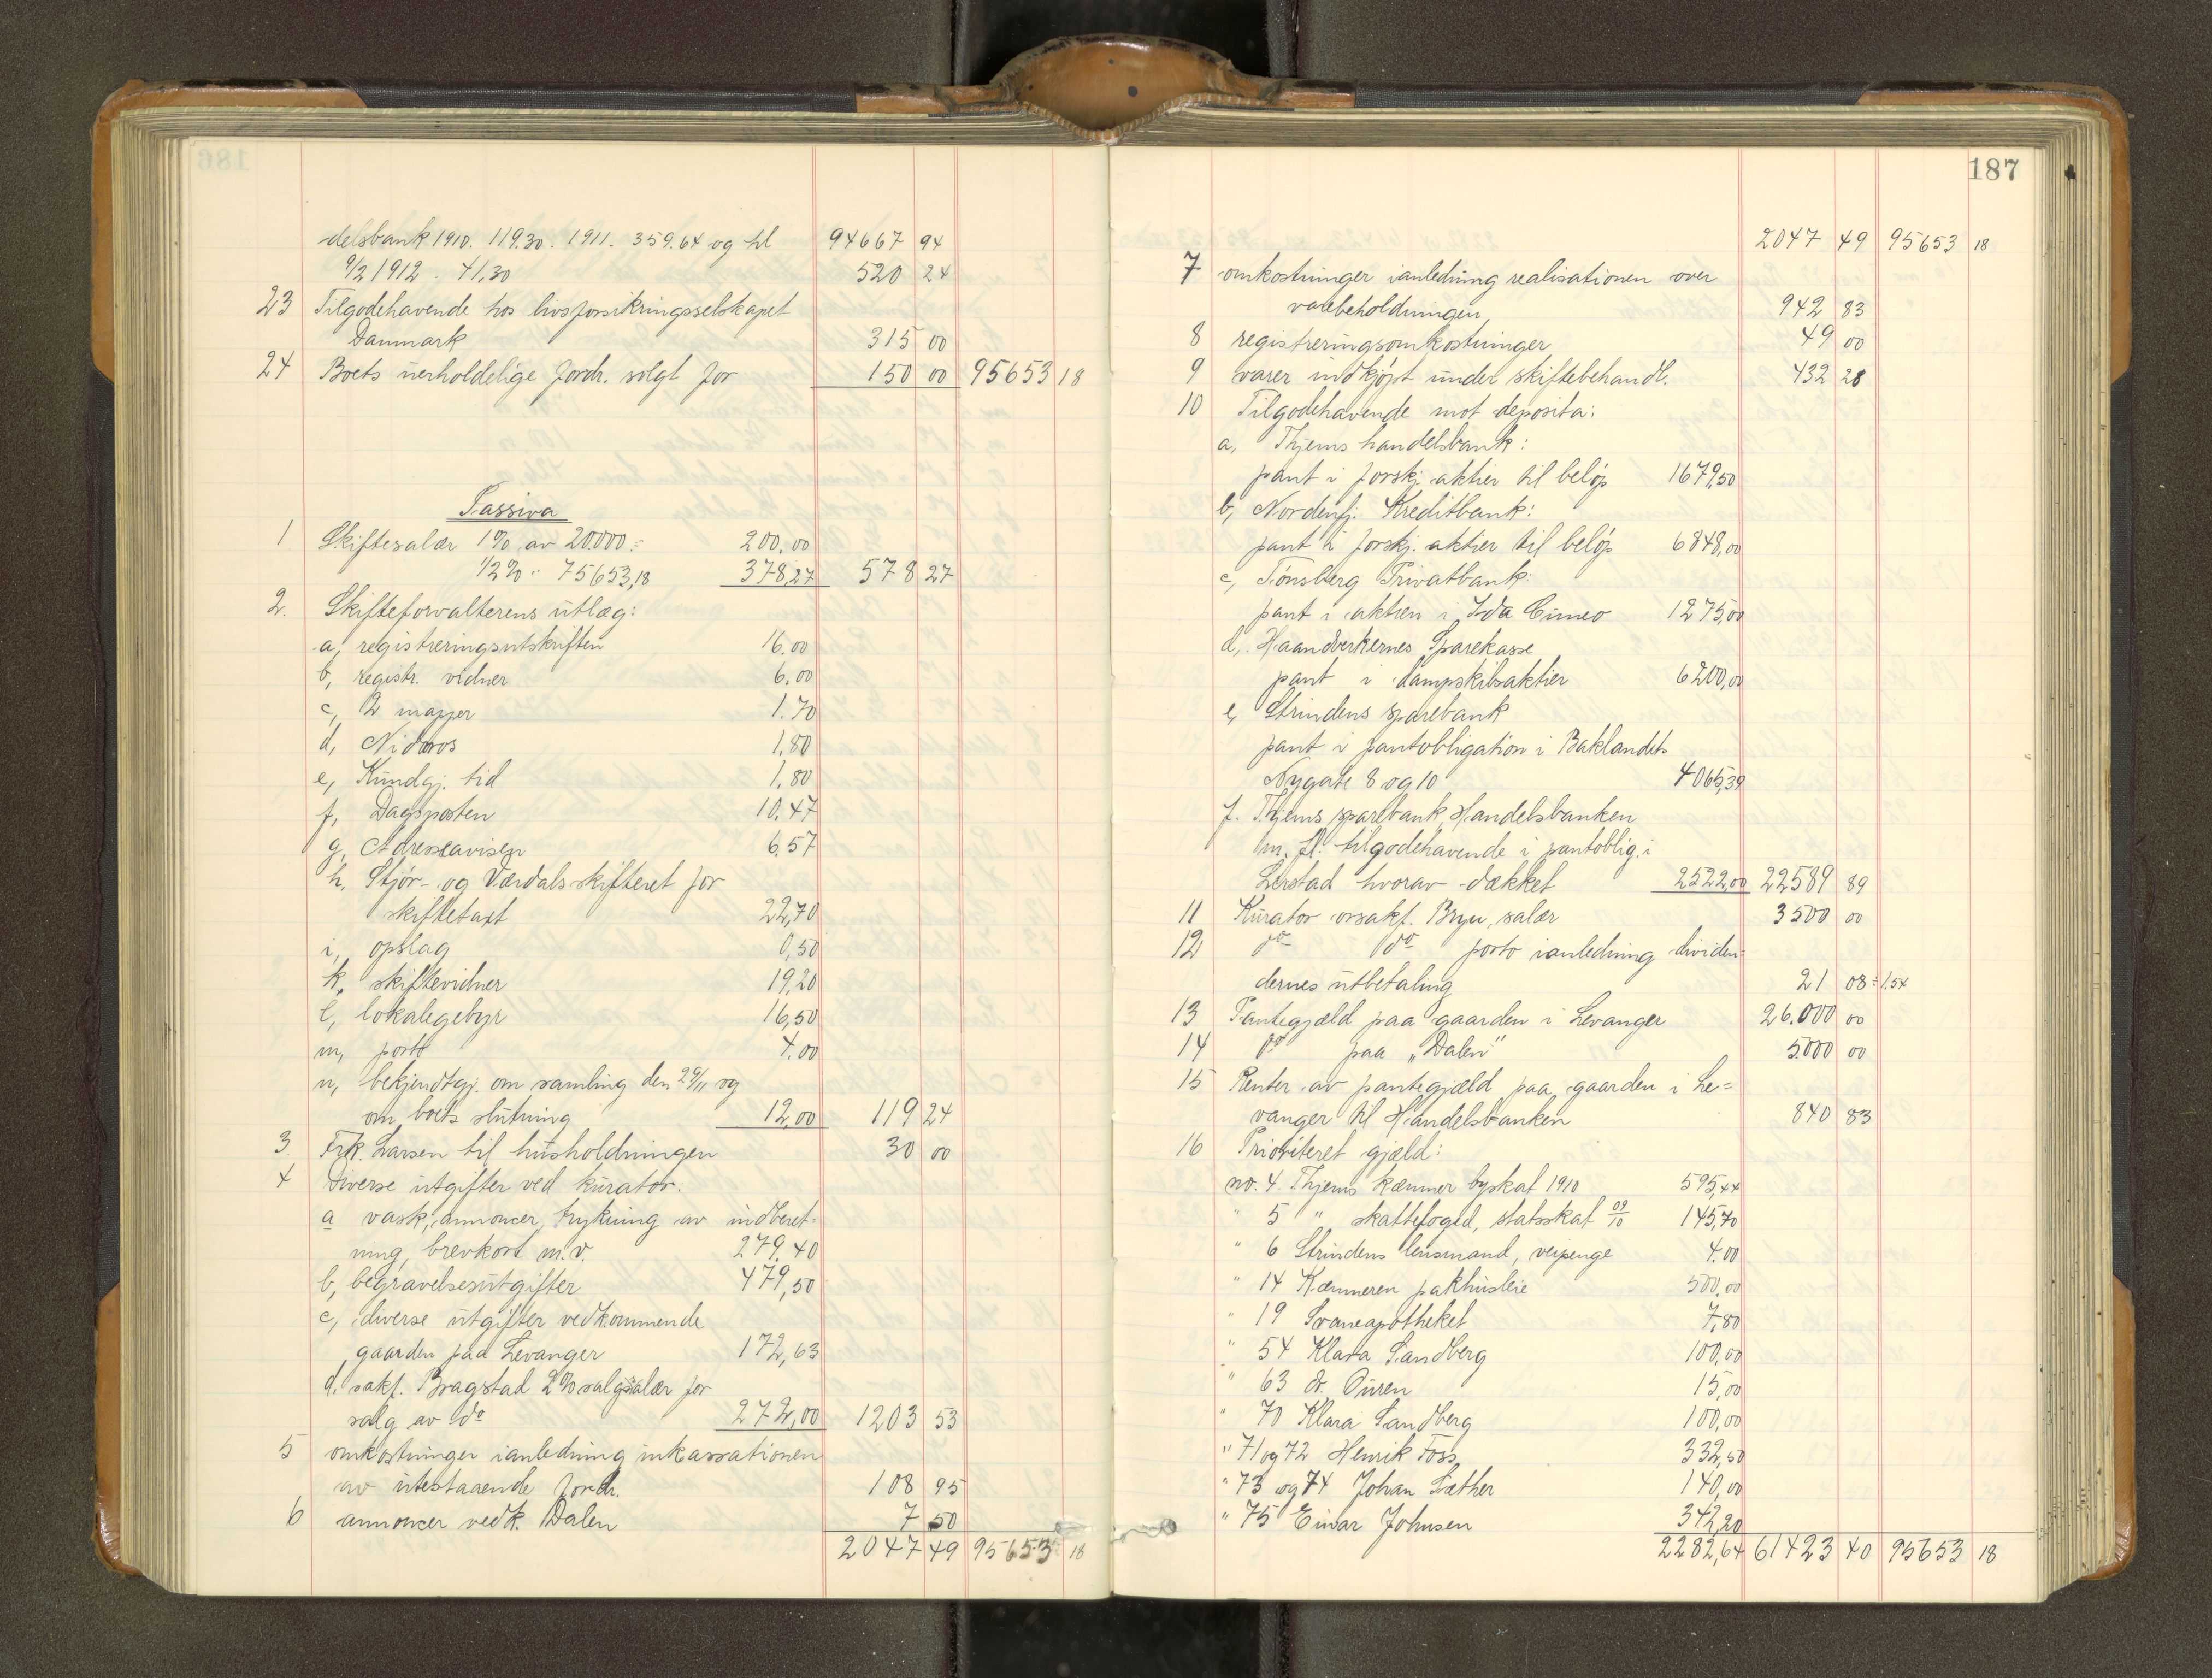 186
delsbank 1910. 119.30. 1911. 359.64 og til 94667 94
9/2 1912. 41,30 520 24
23 Tilgodehavende hos livsforsikringsselskapet
Danmark 315 00
24 Boets uerholdelige fordr. solgt for 150 00 95653 18
Passiva
1 Skiftesalær 1% av 20.000 = 200.00
1/2% " 75653,18 378,27 578 27
2. Skifteforvalterens utlæg:
a, registreringsutskriften 16.00
b, registr. vidner 6.00
c, 2 mapper 1.70
d, Nidaros 1,80
e, Kundgj. tid 1,80
f, Dagsposten 10.47
g, Adresseavisen 6.57
h, Stjør- og Værdalsskifteret for
skiftetakst 22,70
i, opslag 0,50
k, skiftevidner 19,20
l, lokalegebyr 16,50
m, porto 4.00
n, bekjendtgj. om samling den 29/11 og
om boets slutning 12,00 119 24
3. Frk. Larsen til husholdningen 30 00
4 Diverse utgifter ved kurator:
a vask, annoncer, trykning av indberet-
ning, brevkort m.v. 279.40
b, begravelsesutgifter 479,50
c, diverse utgifter vedkommende
gaarden paa Levanger 172,63
d. sakf. Bragstad 2% salgssalær for
salg av do 272,00 1203 53
5 omkostninger ianledning inkassationen
av utestaaende fordr. 108 95
6 annoncer vedk. Dalen 7 50
2047 49 95653 18
187
2047 49 95653 18
7 omkostninger ianledning realisationen over
varebeholdningen 942 83
8 registreringsomkostninger 49 00
9 varer indkjøpt under skiftebehandl. 432 28
10 Tilgodehavende mot deposita:
a, Thjems handelsbank:
pant i forskj. aktier til beløp 1679,50
b, Nordenfj. Kreditbank:
pant i forskj. aktier til beløp 6848,00
c, Tønsberg Privatbank:
pant i aktien i Ida Cuneo 1275,00
d, Haandverkernes Sparekasse
pant i dampskibsaktier 6200,00
e, Strindens sparebank
pant i pantobligation i Baklandets
Nygate 8 og 10 4065,39
f. Thjems sparebank, Handelsbanken
m. fl. tilgodehavende i pantoblig. i
Lerstad hvorav dækket 2522,00 22589 89
11 Kurator orsakf. Bryn, salær 3500 00
12 do do porto ianledning dividen=
dernes utbetaling 21 08 = 1.54
13 Pantegjæld paa gaarden i Levanger 26.000 00
14 do paa „Dalen" 5.000 00
15 Renter av pantegjæld paa gaarden i Le=
vanger til Handelsbanken 840 83
16 Prioriteret gjæld:
no. 4. Thjems kæmner byskat 1910 595,44
" 5 " skattefoged, statsskat 09/10 145,70
" 6 Strindens lensmand, veipenge 4.00
" 14 Kæmneren pakhusleie 500,00
" 19 Svaneapotheket 7,80
" 54 Klara Sandberg 100,00
" 63 dr. Ouren 15,00
" 70 Klara Sandberg 100,00
" 71 og 72 Henrik Foss 332,50
" 73 og 74 Johan Sæther 140,00
" 75 Einar Johnsen 342,20
2282,64 61423 40 95653 18